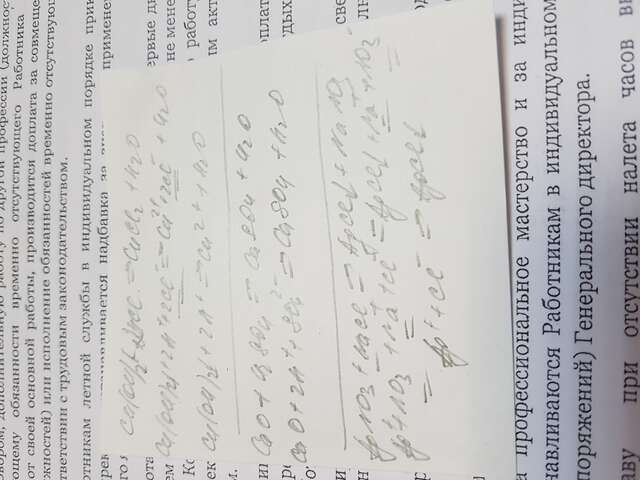 овором, дополнительную работу по другой профессии (должнос
ющему обязанности временно отсутствующего Работника
от своей основной работы, производится доплата за совмеще
жностей) или исполнение обязанностей временно отсутствующ
ответствии с трудовым законодательством.
отникам летной службы в индивидуальном порядке прик
навливается надбавка за применен
Cu(OH)2↓ + 2HCl = CuCl2 + H2O
Cu(OH)2↓ + 2H+ + 2Cl- = Cu2+ + 2Cl- + H2O
Cu(OH)2↓ + 2H+ = Cu2+ + H2O
CaO + H2SO4 = CaSO4 + H2O
CaO + 2H+ + SO4 2- = CaSO4 + H2O
AgNO3 + NaCl = AgCl↓ + NaNO3
Ag+ + NO3- + Na+ + Cl- = AgCl↓ + Na+ + NO3-
Ag+ + Cl- = AgCl↓
а профессиональное мастерство и за инди
навливаются Работникам в индивидуальном
поряжений) Генерального директора.
аву при отсутствии налета часов в